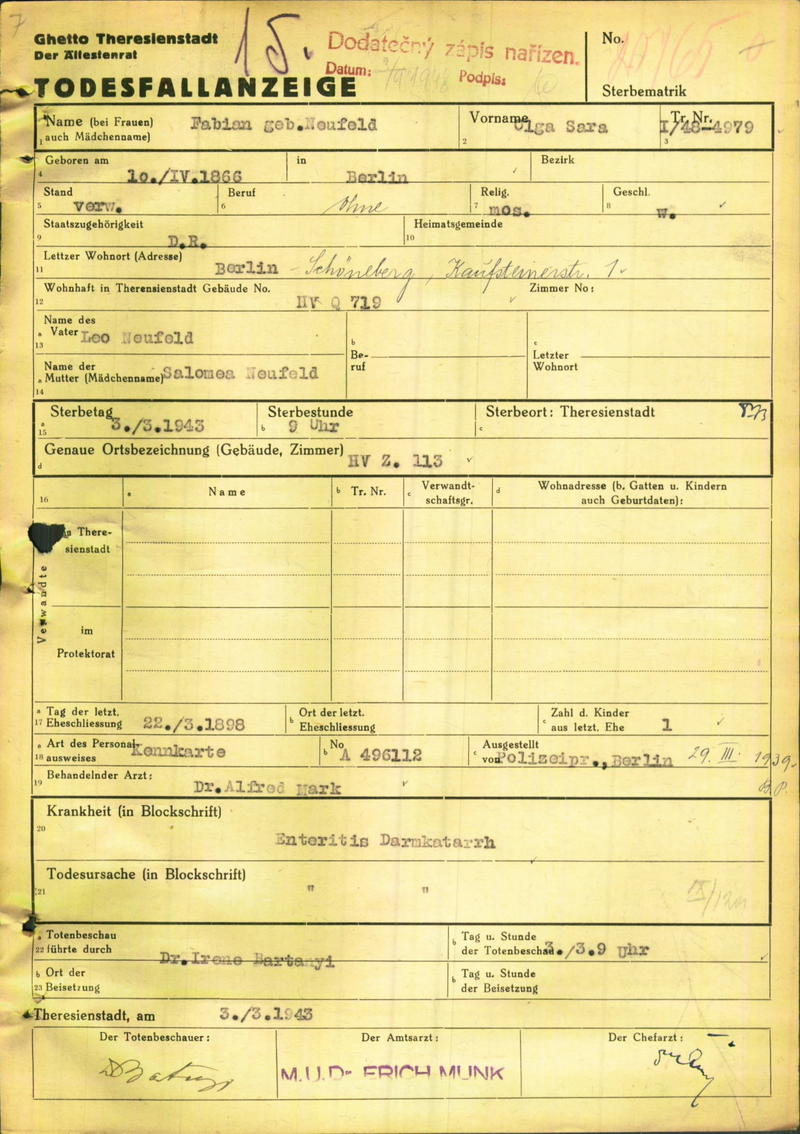 Ghetto Theresienstadt
Der Ältestenrat
TODESFALLANZEIGE
15.
Dodatečný zápis nařízen.
Datum:
Podpis:
No.
Sterbematrik
Name (bei Frauen) Fabian geb.Neufeld
1 auch Mädchenname)
Vorname Olga Sara
2
Tr. Nr. I/48-4979
3
Geboren am 10./IV.1866
4
in Berlin
Bezirk
Stand verw.
5
Beruf ohne
6
Relig. mos.
7
Geschl. w.
8
Staatszugehörigkeit D.R.
9
Heimatsgemeinde
10
Lettzer Wohnort (Adresse) Berlin - Schöneberg, Kaufsteinerstr. 1
11
Wohnhaft in Therensienstadt Gebäude No. HV Q 719
12
Zimmer No:
Name des
a Vater Leo Neufeld
13
Name der
a Mutter (Mädchenname) Salomea Neufeld
14
b
Be-
ruf
c
Letzter
Wohnort
Sterbetag 3./3.1943
a
15
Sterbestunde
b 9 Uhr
Sterbeort: Theresienstadt
c
Genaue Ortsbezeichnung (Gebäude, Zimmer) HV Z. 113
d
16
a Name
b Tr. Nr.
c Verwandt-
schaftsgr.
d Wohnadresse (b. Gatten u. Kindern
auch Geburtdaten):
Verwandte
There-
sienstadt
im
Protektorat
a Tag der letzt.
17 Eheschliessung 22./3.1898
b Ort der letzt.
Eheschliessung
c Zahl d. Kinder
aus letzt. Ehe 1
a Art des Personal-
18 ausweises Kennkarte
b No A 496112
c Ausgestellt
von Polizeipr.,Berlin 29. III. 1939.
Behandelnder Arzt: Dr.Alfred Mark
19
Krankheit (in Blockschrift)
20
Enteritis Darmkatarrh
Todesursache (in Blockschrift)
21 " "
a Totenbeschau
22 führte durch Dr.Irene Bartanyi
b Tag u. Stunde
der Totenbeschau 3./3.9 Uhr
b Ort der
23 Beisetzung
b Tag u. Stunde
der Beisetzung
Theresienstadt, am 3./3.1943
Der Totenbeschauer:
Der Amtsarzt:
M.U.Dr. ERICH MUNK
Der Chefarzt: